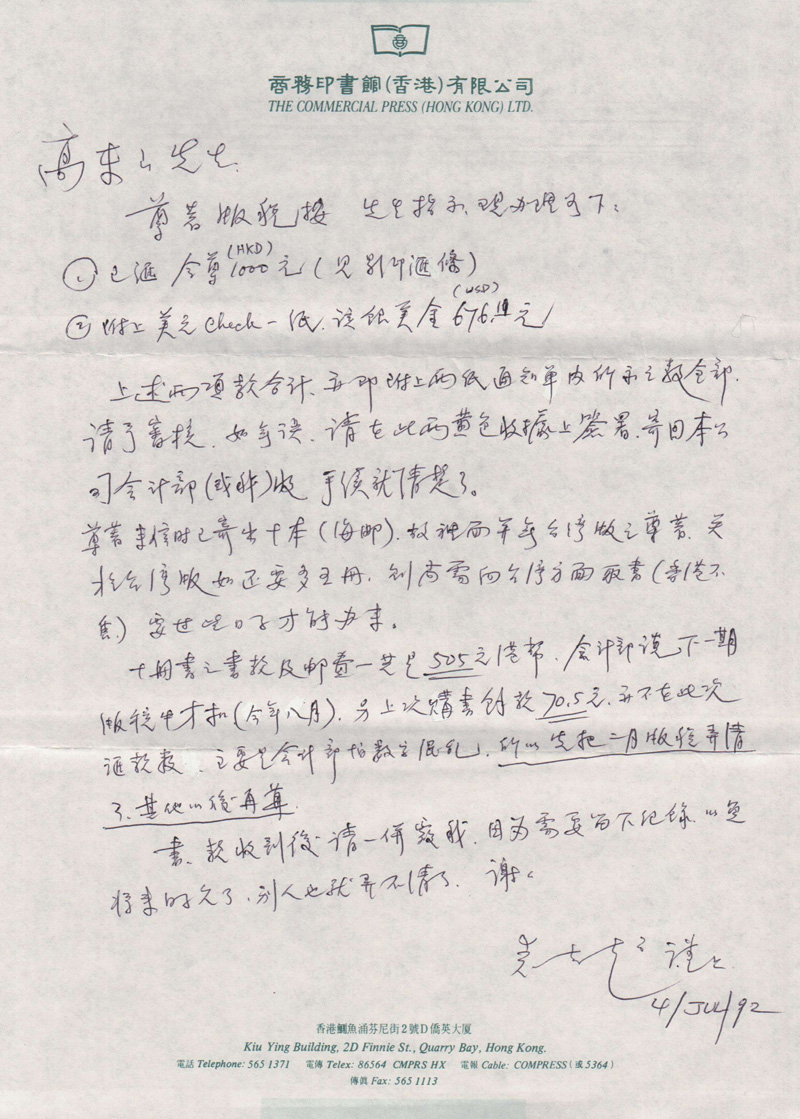 商務印書館(香港)有限公司
THE COMMERCIAL PRESS (HONG KONG) LTD.
高 先生:
尊著版税按 先生指示,現办理如下:
① 已滙 令尊 (HKD) 1000元(見影印滙條)
② 附上美元 check 一纸,該銀美金 (USD) 676 元
上述两項款合计,亦即附上两纸通知单内所示之数全部.
请予審核,如無误,请在此两黄色收據上簽署,寄回本公
司会计部(或 )收 手续就清楚了。
尊著来信时已寄出十本(海邮), 台湾版之尊著,关
於台湾版如还要多 册,则尚需向台湾方面取書(香港不
售)要 些日子才能办来。
十册書之書款及邮費一共是505元港幣,会计部说下一期
版税中才扣(今年八月),另上次購書餘款70.5元,亦不在此次
滙款数,主要是会计部怕数字混乱,所以先把二月版税弄清
了,其他以後再算.
書、款收到後请一併 我,因为需要留下纪錄,以免
将来时久了,别人也就弄不清了. 谢谢
謹上
4/JUL/92
香港鰂魚涌芬尼街2號D僑英大廈
Kiu Ying Building, 2D Finnie St., Quarry Bay, Hong Kong.
電話 Telephone: 565 1371 電傳 Telex: 86564 CMPRS HX 電報 Cable: COMPRESS(或5364)
傳眞 Fax: 565 1113